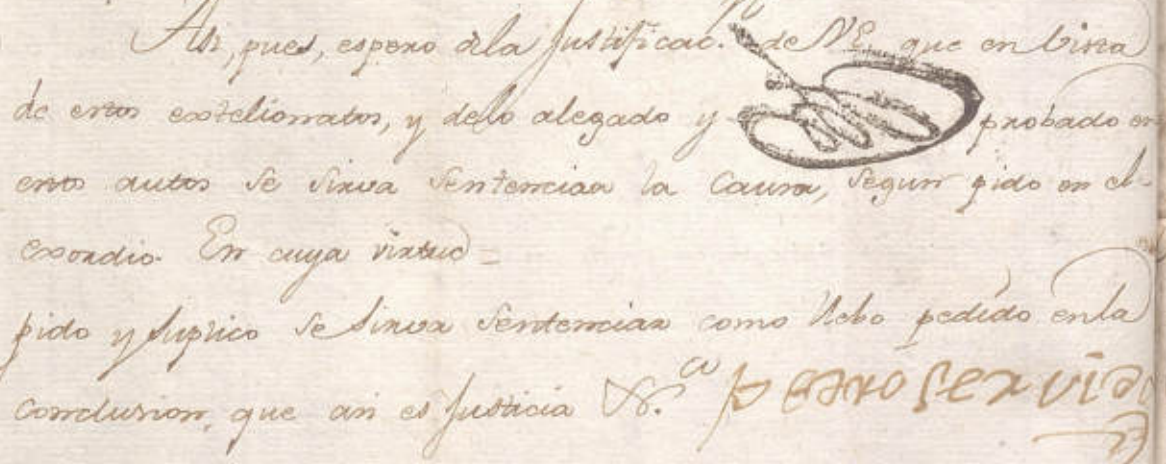 Asi, pues, espero dela Justificac.n de VE que en Vista
de estos estelionatos, y delo alegado y probado en
estos autos se sirva Sentenciar la Causa, Segun pido en el
exordio. En cuya virtud =
pido y suplico se sirva Sentenciar como llebo pedido enla
Conclusion, que asi es Justicia &.a